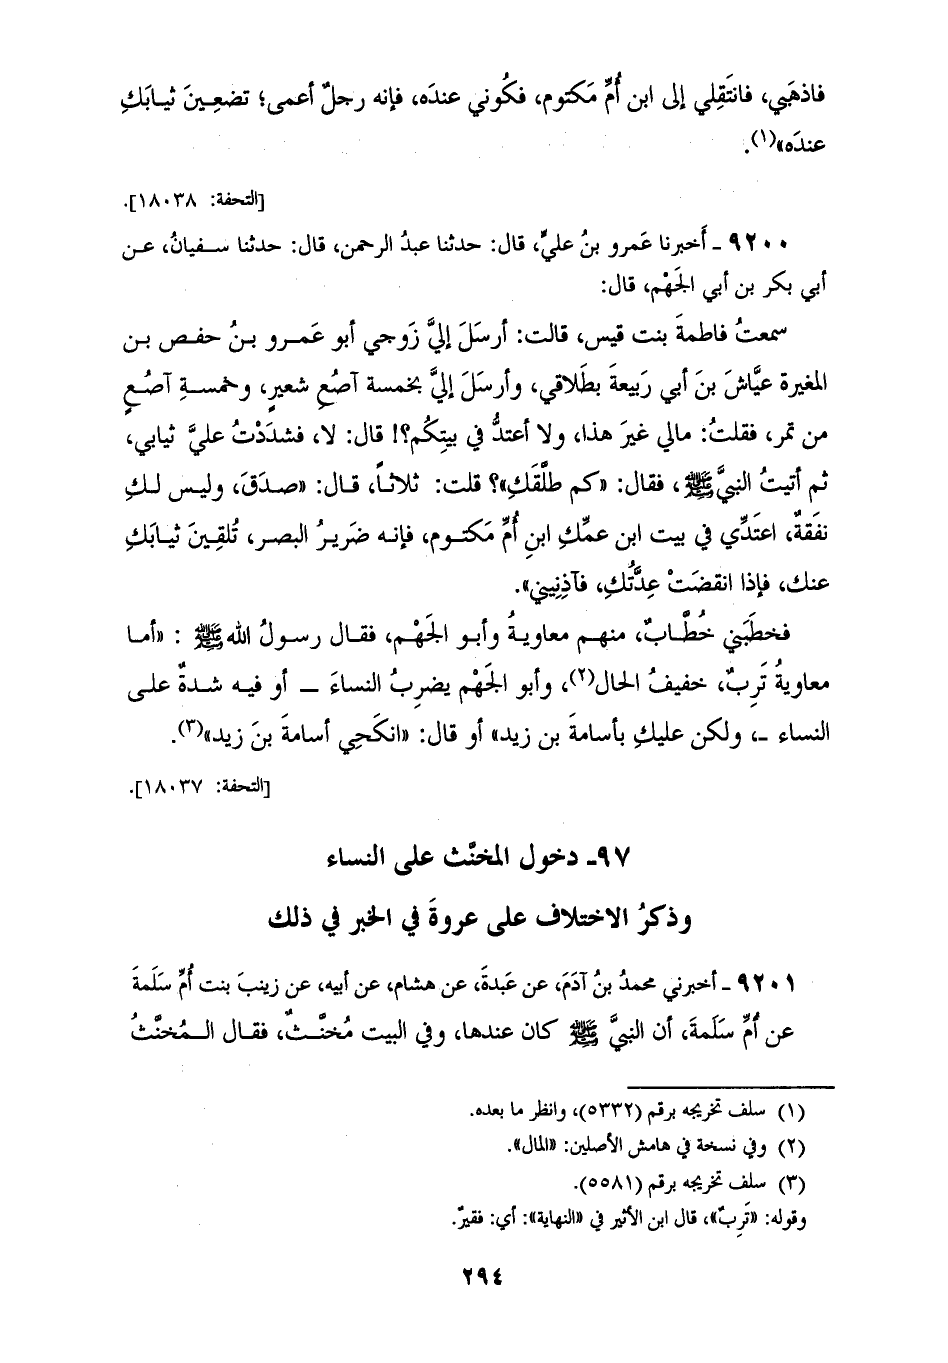 فاذهَبي، فانتَقِلي إلى ابن أُمِّ مَكتوم، فكُوني عندَه، فإنه رجلٌ أعمى؛ تضعِينَ ثيابَكِ
عندَه»(١).
[التحفة: ١٨٠٣٨].
٩٢٠٠ ـ أَخبرنا عَمرو بنُ عليٍّ، قال: حدثنا عبدُ الرحمن، قال: حدثنا سفيانُ، عن
أبي بكر بن أبي الجَهْم، قال:
سمعتُ فاطمةَ بنت قيس، قالت: أرسَلَ إليَّ زَوجي أبو عَمرو بنُ حفص بن
المغيرة عيَّاشَ بنَ أبي رَبيعةَ بطَلاقي، وأرسَلَ إليَّ بخمسة آصُعِ شعيرٍ، وخمسةِ آصُعٍ
من تمر، فقلتُ: مالي غيرَ هذا، ولا أعتدُّ في بيتِكُم؟! قال: لا، فشدَدْتُ عليَّ ثيابي،
ثم أتيتُ النبيَّ ﷺ، فقال: «كم طلَّقَكِ»؟ قلت: ثلاثاً، قال: «صدَقَ، وليس لكِ
نفَقةٌ، اعتَدِّي في بيت ابن عمِّكِ ابنِ أُمِّ مَكتوم، فإنه ضَريرُ البصر، تُلقِينَ ثيابَكِ
عنك، فإذا انقضَتْ عِدَّتُكِ، فآذِنِيني».
فخطَبَني خُطَّابٌ، منهم معاويةُ وأبو الجَهْم، فقال رسولُ الله ﷺ: «أما
معاويةُ تَرِبٌ، خفيفُ الحال(٢)، وأبو الجَهْم يضرِبُ النساءَ ـ أو فيه شدةٌ على
النساء ـ، ولكن عليكِ بأسامةَ بن زيد» أو قال: «انكَحِي أسامةَ بنَ زيد»(٣).
[التحفة: ١٨٠٣٧].
٩٧ـ دخول المخنَّث على النساء
وذكرُ الاختلاف على عروةَ في الخبر في ذلك
٩٢٠١ ـ أخبرني محمدُ بنُ آدَمَ، عن عَبدةَ، عن هشام، عن أبيه، عن زينبَ بنت أُمِّ سلَمةَ
عن أُمِّ سَلَمةَ، أن النبيَّ ﷺ كان عندها، وفي البيت مُخنَّثٌ، فقال المُخنَّثُ
(١) سلف تخريجه برقم (٥٣٣٢)، وانظر ما بعده.
(٢) وفي نسخة في هامش الأصلين: «المال».
(٣) سلف تخريجه برقم (٥٥٨١).
وقوله: «تَرِبٌ»، قال ابن الأثير في «النهاية»: أي: فقيرٌ.
٢٩٤